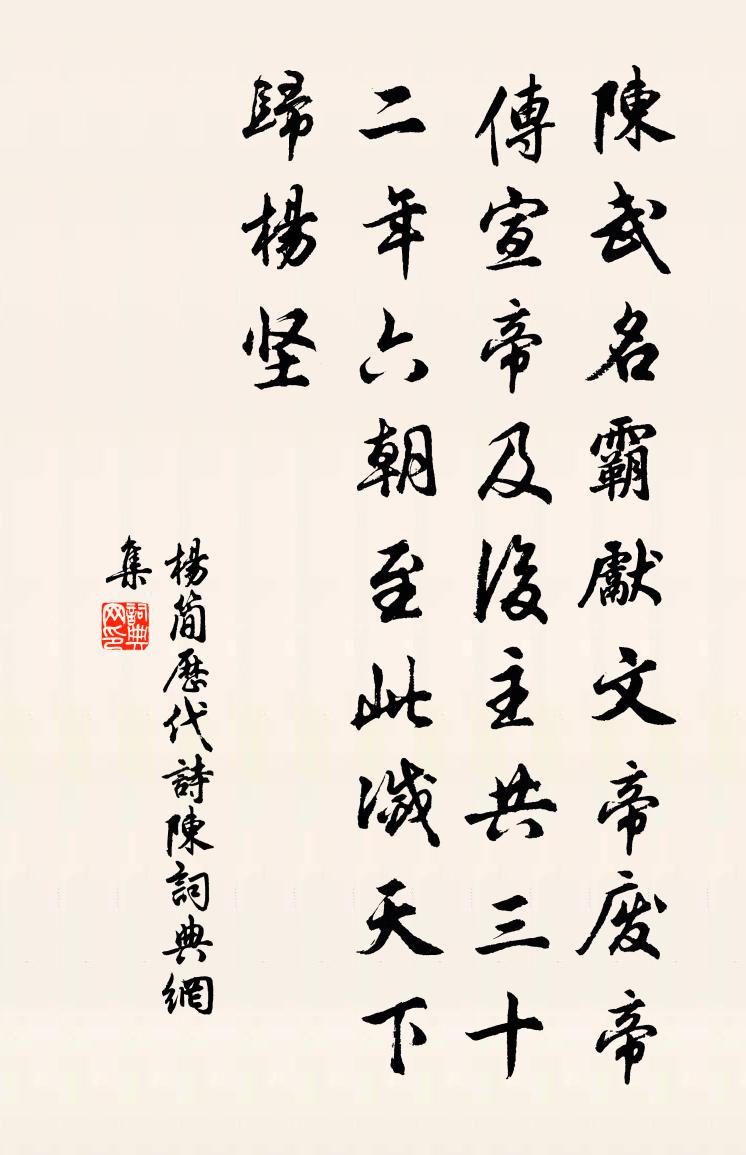 陳武名霸獻文帝废帝
傳宣帝及後主共三十
二年六朝至此滅天下
歸楊坚
楊简歷代詩陳詞典網
集
詞典网印